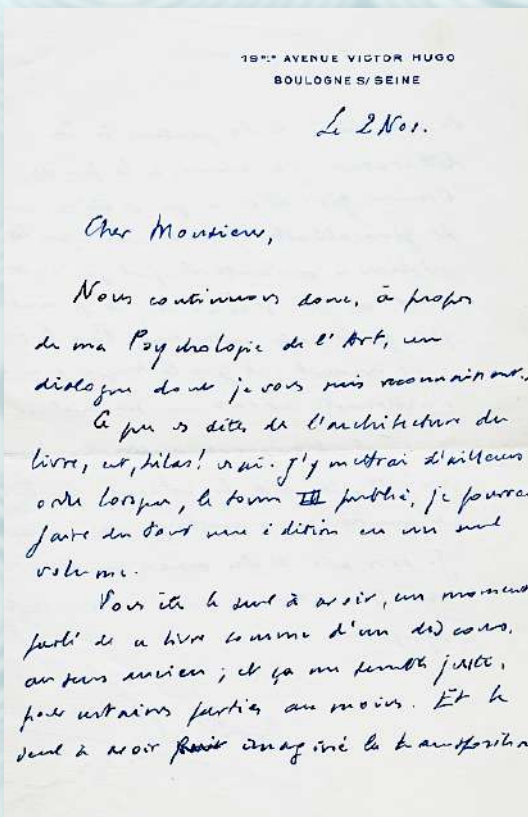 19BIS AVENUE VICTOR HUGO
BOULOGNE S/SEINE
Le 2 Nov.
Cher Monsieur,
Nous continuons donc, à propos
de ma Psychologie de l'Art, un
dialogue dont je vous suis reconnaissant.
Ce que vs dites de l'architecture du
livre, est, hélas! vrai. J'y mettrai d'ailleurs
ordre lorsque, le tome III publié, je pourrai
faire du tout une édition en un seul
volume.
Vous êtes le seul à avoir, un moment
parlé de ce livre comme d'un discours,
au sens ancien; et ça me semble juste,
pour certaines parties au moins. Et le
seul à avoir imaginé la transposition